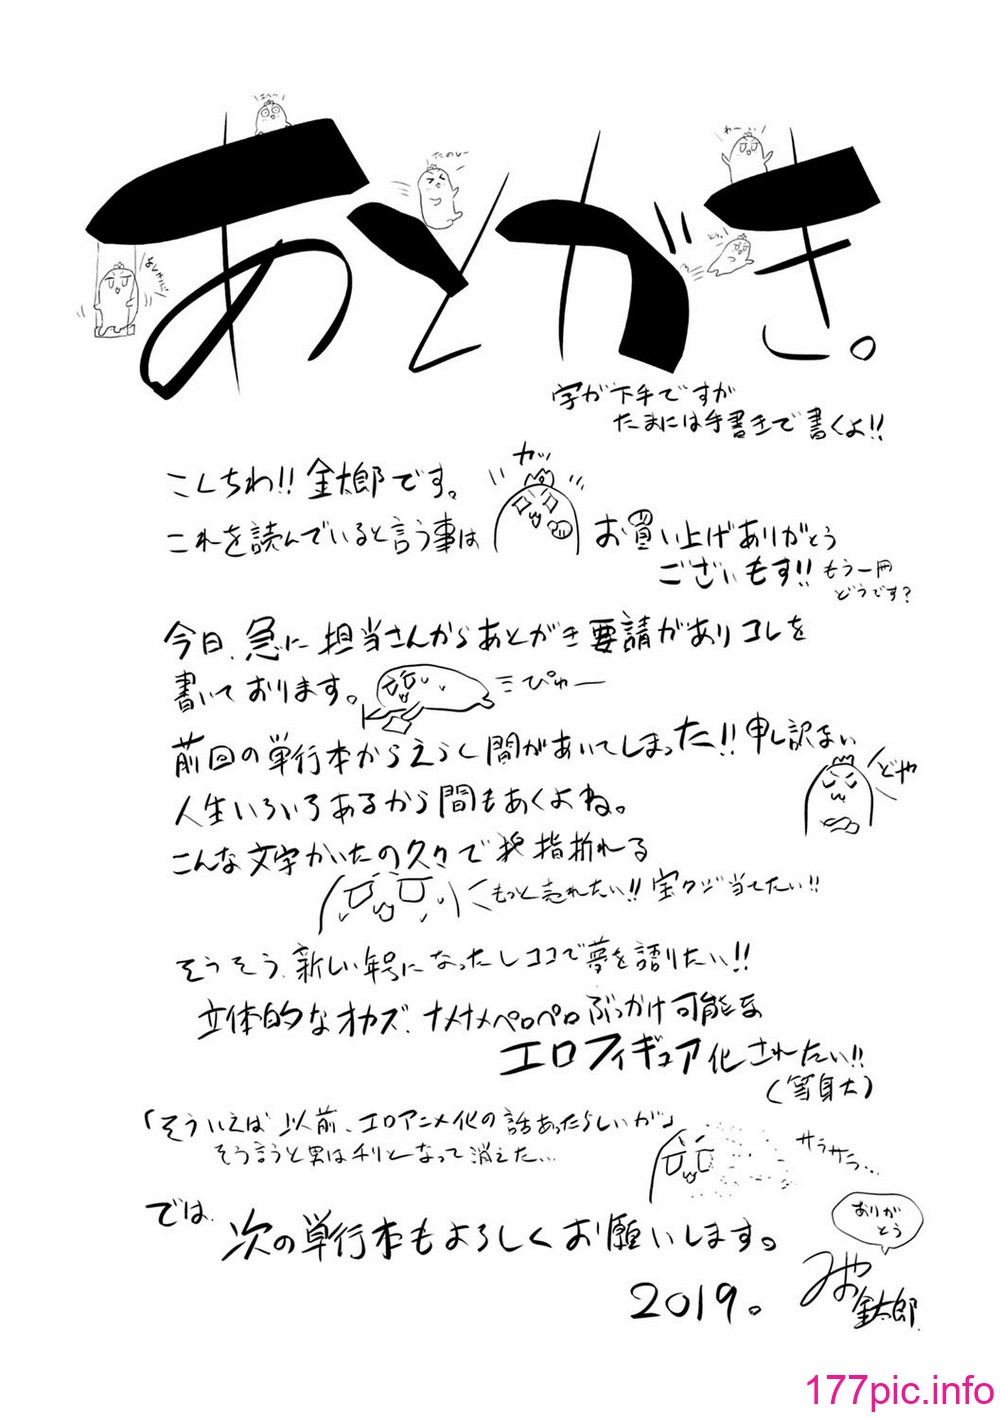 あとがき。
わーい
たのしー
字が下手ですが
たまには手書きで書くよ!!
こんちわ!! 金太郎です。
カッ
これを読んでいると言う事は
お買い上げありがとう
ございもす!!
もう一冊
どうです?
今日、急に担当さんからあとがき要請がありコレを
書いております。
ぴゅー
前回の単行本からえらく間があいてしまった!! 申し訳ない
どや
人生いろいろあるから間もあくよね。
こんな文字かいたの久々で指折れる
もっと売れたい!! 宝クジ当てたい!!
そうそう、新しい年号になったしココで夢を語りたい!!
立体的なオカズ、ナメナメペロペロぶっかけ可能な
エロフィギュア化されたい!!
(等身大)
「そういえば以前、エロアニメ化の話あったらしいが」
そう言うと男はチリとなって消えた…
サラサラ…
では、
次の単行本もよろしくお願いします。
ありが
とう
2019。
みやお金太郎
177pic.info